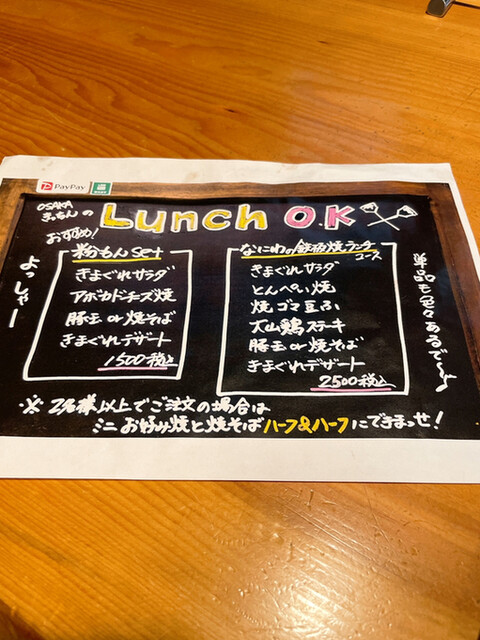 PayPay
OSAKA
きっちんの
おすすめ!
Lunch O.K
よっしゃー
粉もんset
きまぐれサラダ
アボカドチーズ焼
豚玉 or 焼そば
きまぐれデザート
1500税込
なにわの鉄板焼ランチ
コース
きまぐれサラダ
とんぺい焼
焼ゴマ豆ふ
大山鶏ステーキ
豚玉 or 焼そば
きまぐれデザート
2500税込
単品も色々あるでぇ〜
※ 2名様以上でご注文の場合は
ミニお好み焼と焼そばハーフ&ハーフにできまっせ!